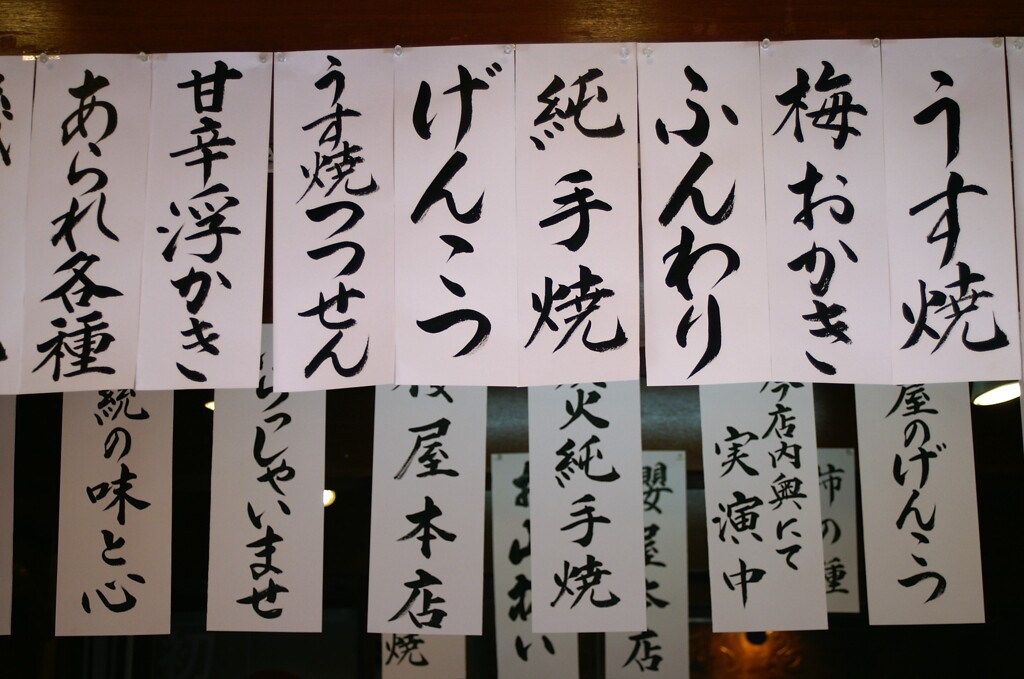 うす焼
梅おかき
ふんわり
純手焼
げんこつ
うす焼つつせん
甘辛浮かき
あられ各種
屋のげんこつ
店内奥にて
実演中
火純手焼
屋本店
らっしゃいませ
統の味と心
柿の種
櫻屋本店
焼